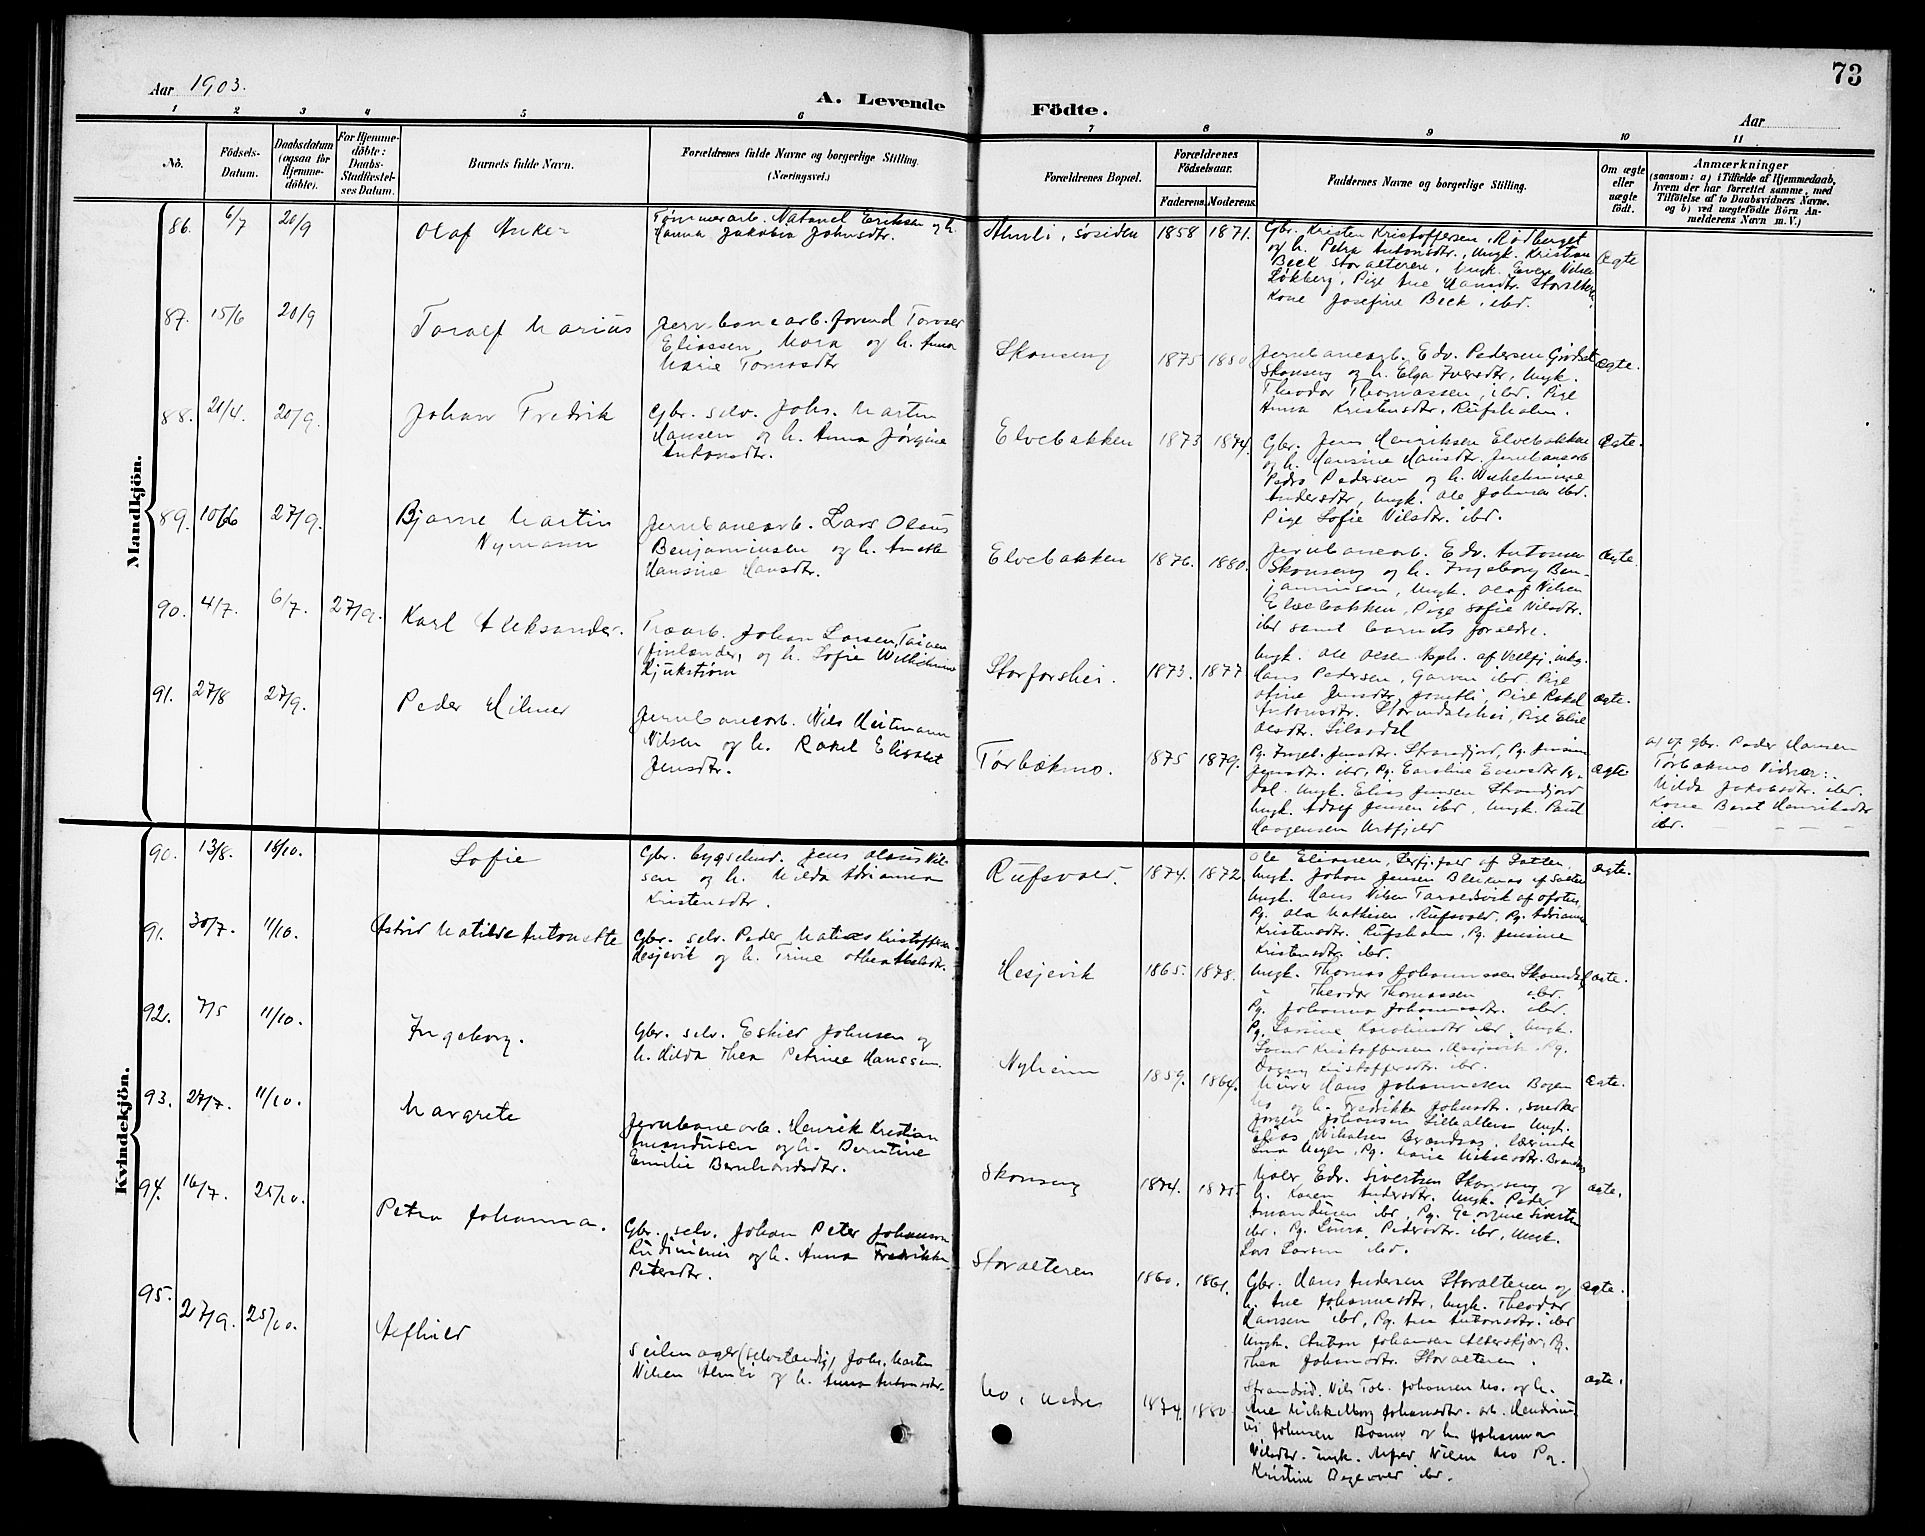 73
Aar 1903.
A. Levende Födte.
Aar
1 2 3 4 5 6 7 8 9 10 11
No.
Födsels-
Datum.
Daabsdatum
(ogsaa for
Hjemme-
döbte).
For Hjemme-
döbte:
Daabs-
Stadfæstel-
ses Datum.
Barnets fulde Navn.
Forældrenes fulde Navne og borgerlige Stilling.
(Næringsvei.)
Forældrenes Bopæl.
Forældrenes
Födselsaar.
Faderens. Moderens.
Faddernes Navne og borgerlige Stilling.
Om ægte
eller
uægte
födt.
Anmærkninger
(saasom: a) i Tilfælde af Hjemmedaab,
hvem der har forrettet samme, med
Tilföielse af to Daabsvidners Navne.
og b) ved uægtefödte Börn An-
melderens Navn m. V.)
Mandkjön.
86. 6/7 20/9
Olaf Anker
Tømmerarb. Natanel Eriksen og h.
Hanna Jakobia Johnsdtr.
Almli, søsiden 1858 1871.
Gbr. Kristen Kristoffersen, Rødberget
og h. Petra Antonsdtr., Ungk. Kristian
Beck Storalteren, Ungk. Nilsen
Løkberg, Pige Ane Hansdtr. Storalteren,
Kone Josefine Beck, ibd.
Ægte
87. 15/6 20/9
Toralf Marius
Jernbanearb. forend
Eliassen, Mora og h. Anna
Marie Tomasdtr
Skonseng 1875 1880
Jernbanearb. Edv. Pedersen
Skonseng og h. Elga Iversdtr, Ungk.
Theodor Thomassen, ibd. Pige
Anna Kristensdtr, Rufsholm.
Ægte.
88. 21/4. 20/9.
Johan Fredrik
Gbr. selv. Johs. Martin
Hansen og h. Anna Jørgine
Antonsdtr.
Elvebakken 1873 1874.
Gbr. Jens Henriksen Elvebakken
og h. Hansine Hansdtr. Jernbanearb
Pedro Pedersen og h. Wilhelmine
Andersdtr, Ungk. Ole Johnsen ibd.
Pige Sofie Nilsdtr. ibd.
Ægte.
89. 10/6 27/9.
Bjarne Martin
Nymann
Jernbanearb. Lars Olaus
Benjaminsen og h. Anette
Hansine Hansdtr.
Elvebakken 1876. 1880.
Jernbanearb. Edv. Antonsen
Skonseng og h. Ingeborg Ben-
jaminsen, Ungk. Olaf Nilsen
Elvebakken, Pige Sofie Nilsdtr.
ibd samt barnets forældre.
Ægte
90. 4/7. 6/7. 27/9.
Karl Aleksander.
Træarb. Johan Larsen
(finlænder, og h. Sofie Wilhelmine
Bjukstrøm
Storforshei. 1873. 1877
Ungk. Ole Olsen af Vellfj., Ungk.
Hans Pedersen, ibd. Pige
Jensdtr. Pige Rakel
Antonsdtr. Stormdalshei, Pige Elise
Olsdtr.
Ægte.
91. 27/8 27/9.
Peder Hilmer
Jernbanearb. Nils Heitmann
Nilsen og h. Rakel Elisabet
Jensdtr.
Tørbækmo. 1875 1879.
Pg. Ingeb. Jensdtr. Strandjord, Pg. Jensine
Jensdtr. ibd, Pg. Caroline
dal. Ungk. Elias Jensen Strandjord
Ungk. Adolf Jensen ibd, Ungk. Paul
Haagensen Urtfjeld
Ægte
a) af gbr. Peder Hansen
Tørbækmo Vidner:
Hilda Jakobsdtr. ibd.
Kone Beret Henriksdtr
ibd.
Kvindekjön.
90. 13/8. 18/10.
Sofie
Gbr. bygselmd. Jens Olaus Nil-
sen og h. Hilda Adrianna
Kristensdtr.
Rufsvold. 1874. 1872
Ole Eliassen, af Salten,
Ungk. Johan Jensen af Salten
Ungk. Hans Nilsen Taraldsvik af Ofoten,
Pg. Ola Mathisen, Rufsvold, Pg. Adrianna
Kristensdtr. Rufsholm, Pg. Jensine
Kristensdtr. ibd.
Ægte.
91. 30/7. 11/10.
Astrid Matilde Antonette
Gbr. selv. Peder Matias Kristoffersen
Hesjevik og h. Trine
Hesjevik 1865. 1878.
Ungk. Thomas Johannessen
" Theodor Thomassen ibd.
Pg. Johanna Johannesdtr. ibd.
Pg. Larsine Karolinsdtr ibd. Ungk.
Kristoffersen, Hesjevik, Pg.
Dagny Kristoffersdtr. ibd.
Ægte.
92. 7/5 11/10.
Ingeborg.
Gbr. selv. Eskild Johnsen og
h. Hilda Thea Petrine Hanssen.
Nyheim 1859. 1864.
Murer Hans Johannesen Bogen
Mo og h. Fredrikke Johnsdtr., snedker
Jørgen Johansen Lillealteren Ungk.
Elias Mikalsen Brandsås, lærerinde
Pg. Marie Mikalsdtr. Brandsås
Ægte.
93. 27/7. 11/10.
Margrete
Jernbanearb. Henrik Kristian
Amandusen og h. Berntine
Emilie Bernhardsdtr.
Skonseng 1874. 1875
Maler Edv. Sivertsen Skonseng og
h. Karen Andersdtr. Ungk. Peder
Amandusen ibd, Pg. Georgine Sivertsen
ibd. Pg. Laura Pedersdtr. ibd, Ungk.
Lars Larsen ibd.
Ægte.
94. 16/7. 25/10.
Petra Johanna.
Gbr. selv. Johan Peter Johansen
og h. Anna Fredrikke
Petersdtr.
Storalteren 1860. 1861.
Gbr. Hans Andersen Storalteren og
h. Ane Johannesdtr, Ungk. Theodor
Hansen ibd, Pg. Ane Antonsdtr. ibd
Ungk. Anton Johansen Alderskjær, Pg.
Thea Johansdtr. Storalteren.
Ægte.
95. 27/9. 25/10.
Alfhild
Seilmager (selvstændig) Johs. Martin
Nilsen Almli og h. Anna Antonsdtr.
Mo, nedre 1874. 1880
Strandsid. Nils Tob. Johansen Mo. og h.
Ane Johansdtr. arb. Hendrim-
us Johnsen Båsmo og h. Johanna
Nilsdtr. ungk. Alfred Nilsen Mo Pg.
Kristine ibd.
Ægte.